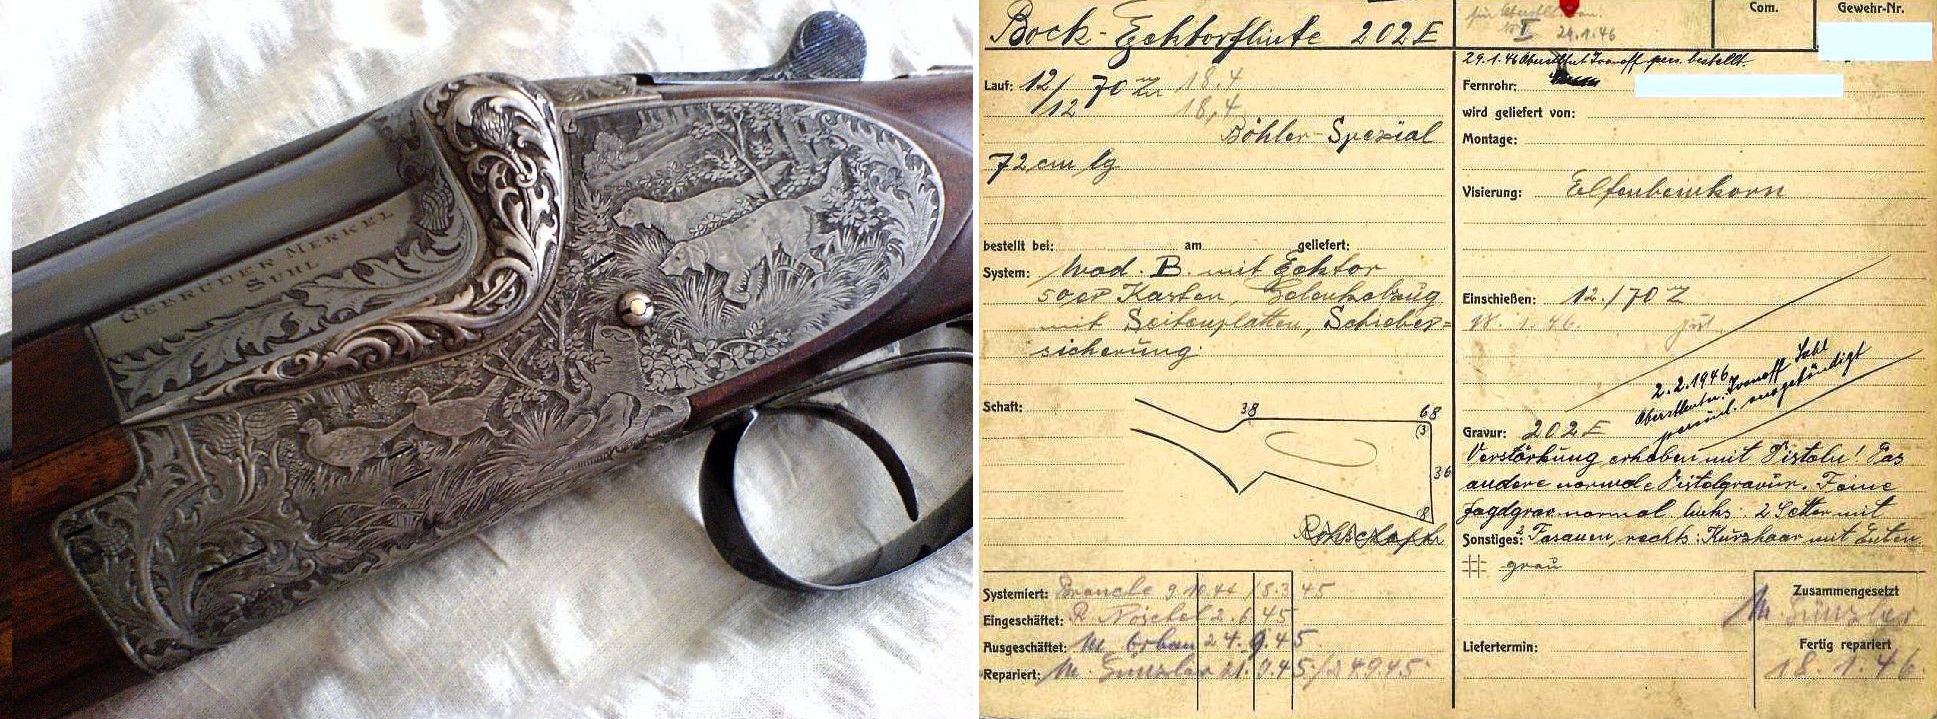 GEBRÜDER MERKEL
SUHL
Bock-Ejektorflinte 202E
Lauf: 12/12 70 18.4
18,4
Böhler-Spezial
72 cm lg
bestellt bei: am geliefert:
System: Mod. B. mit Ejektor
Kasten,
mit Seitenplatten, Schieber=
sicherung.
Schaft:
38 68
36
Systemiert: 9.10.44 / 5.3.45
Eingeschäftet: 2.6.45
Ausgeschäftet: M. Orban 24.9.45
Repariert: M. Günzler 21.9.45/24.9.45
29.1.46
Com.
Gewehr-Nr.
29.1.46 Oberstltnt Ivanoff pers. bestellt.
Fernrohr:
wird geliefert von:
Montage:
Visierung: Elfenbeinkorn
Einschießen: 12./70 Z
18.1.46. gut
2.2.1946 Suhl
Oberstltn. Ivanoff
persönl. ausgehändigt
Gravur: 202E
Verstärkung erhaben mit Disteln! Das
andere normale Distelgravur. Feine
Jagdgrav normal links: 2 Setter mit
Sonstiges: 2 Fasanen, rechts: Kurzhaar mit Enten.
grau
Zusammengesetzt
M. Günzler
Liefertermin:
Fertig repariert
18.1.46